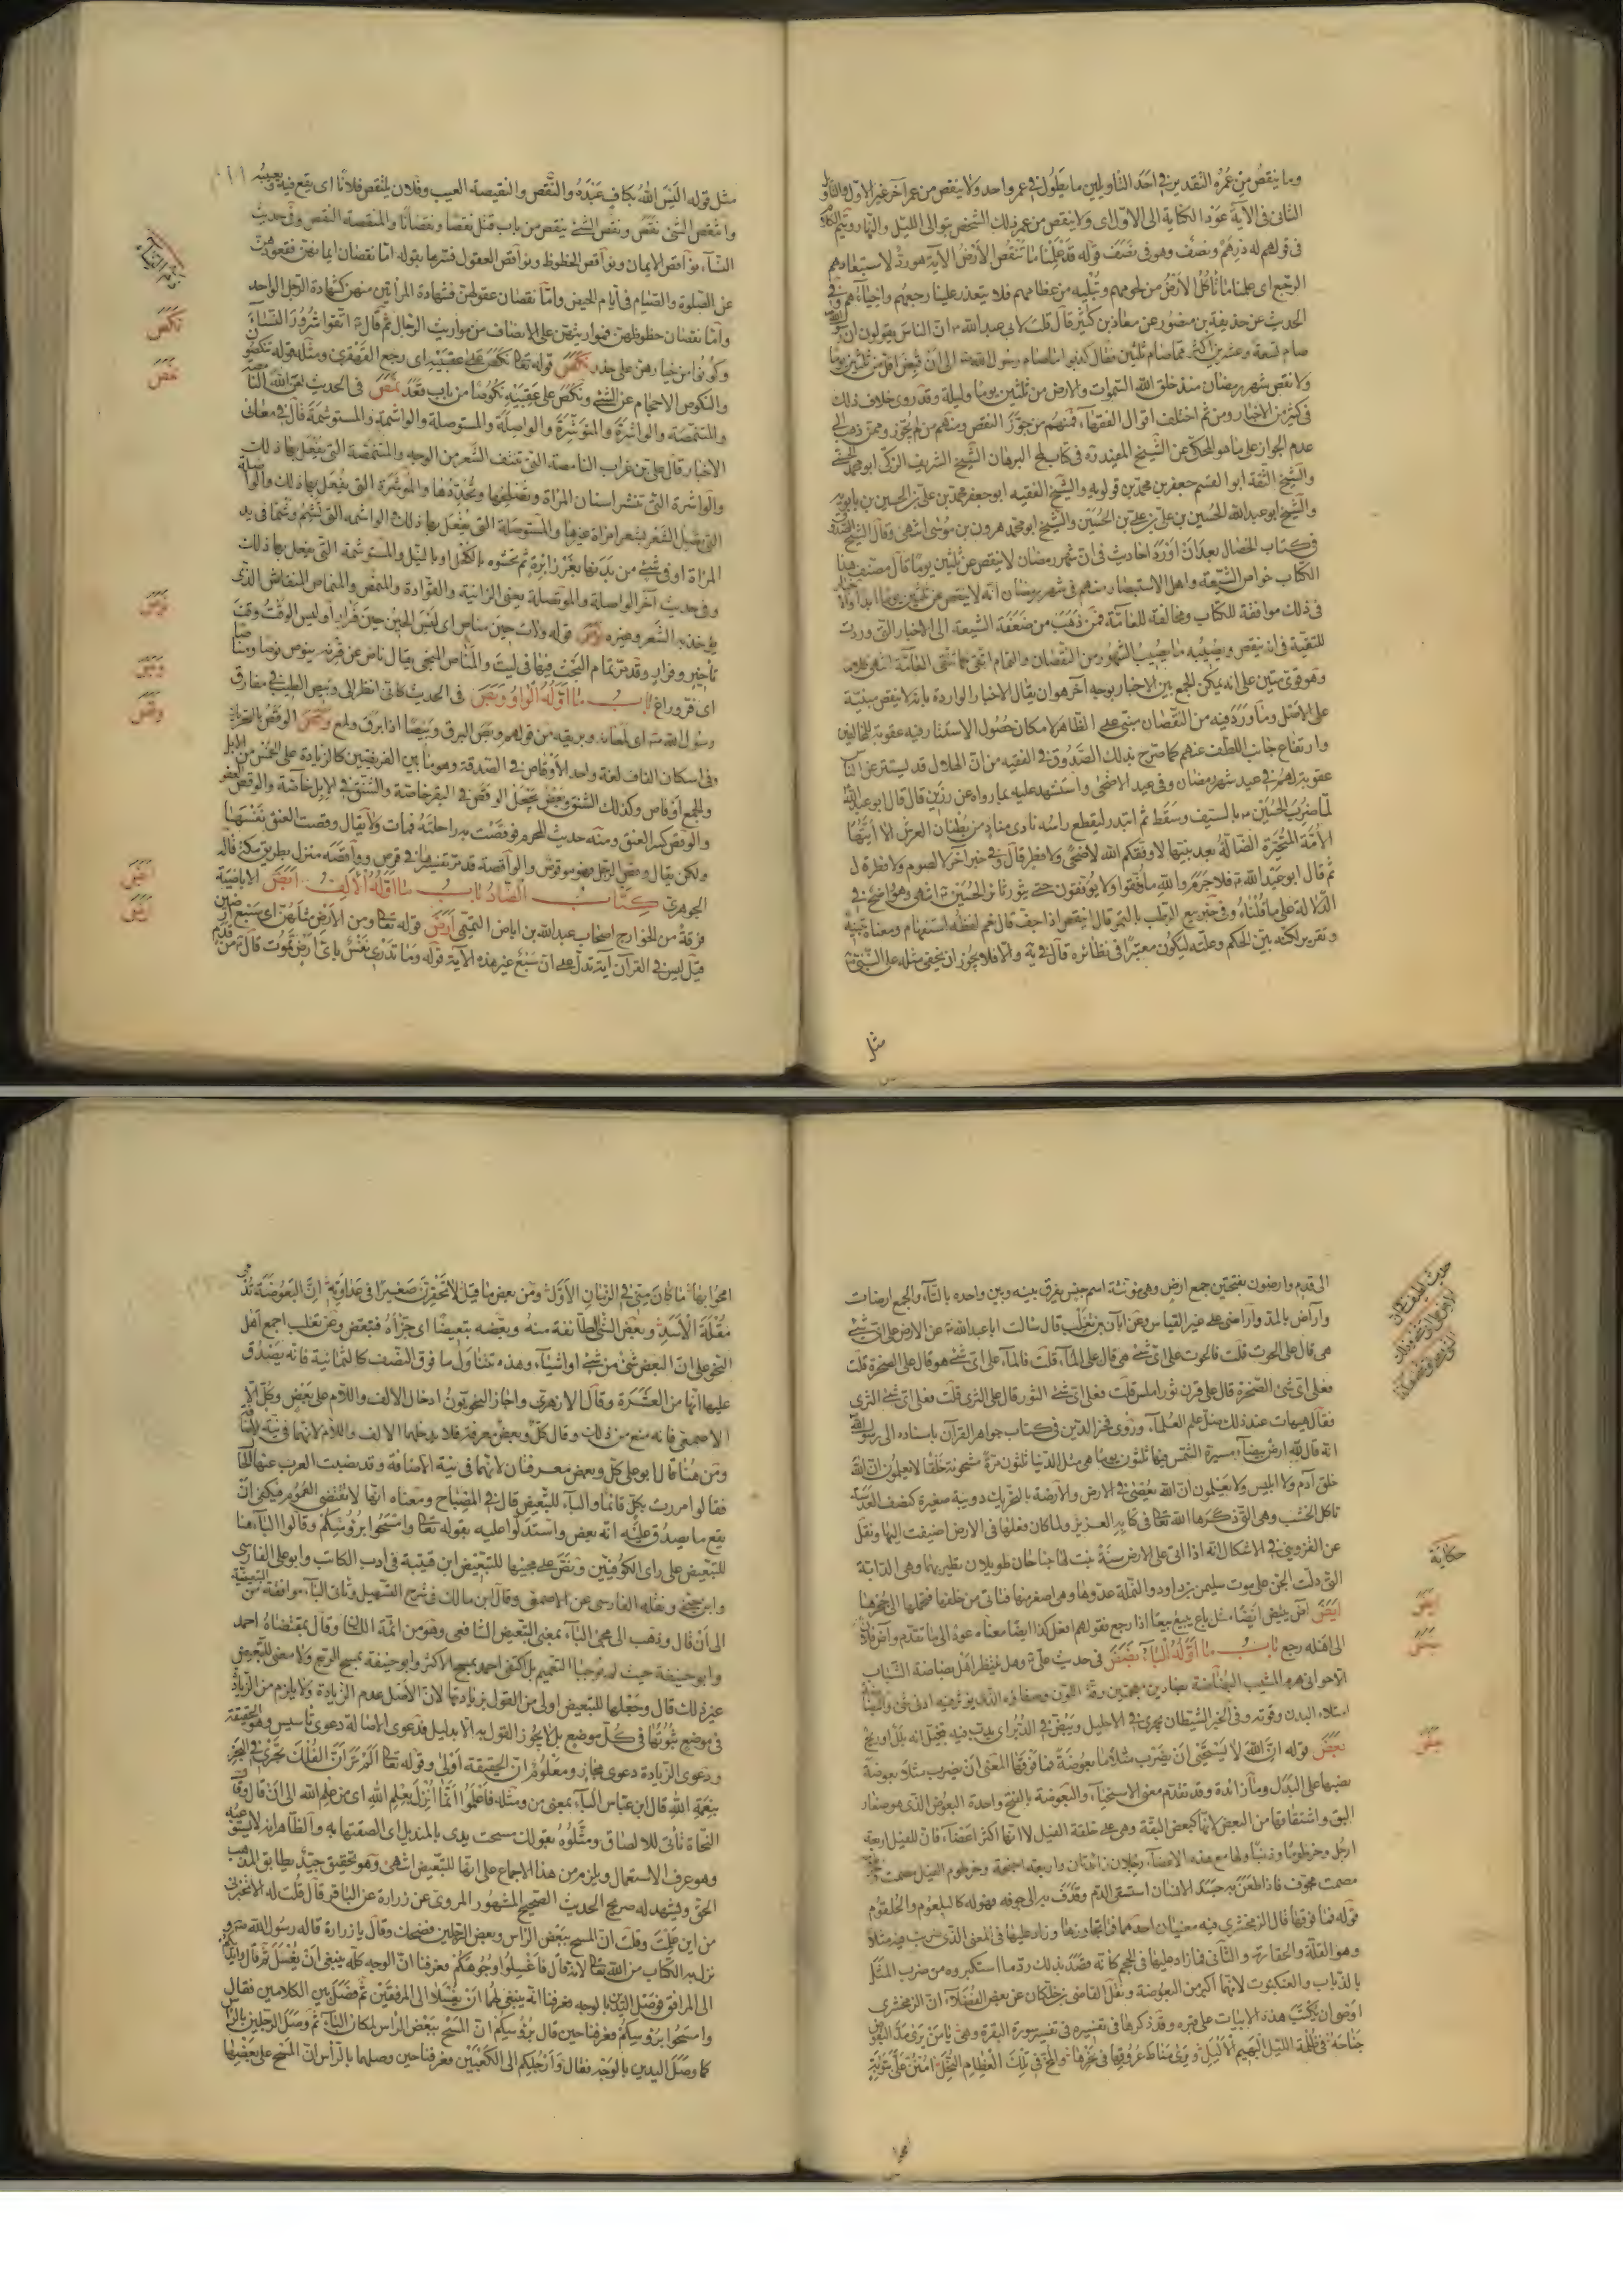 وما ينقص من عمره التقدير في احد التاويلين ما يطول في عمر واحد ولا ينقص من عمر آخر غير الاول والتاويل
الثاني في الآية عود الكناية الى الاول اى ولا ينقص من عمر ذلك الشخص بتوالى الليل والنهار
في قولهم له درهم ونصف وهو في نصف قوله قد علمنا ما تنقص الأرض الآية هو رد لاستبعادهم
الرجع اى علمنا ما تأكل الأرض من لحومهم وتبليه من عظامهم فلا يتعذر علينا رجعهم واحياءهم وفي
الحديث عن حذيفة بن منصور عن معاذ بن كثير قال قلت لابي عبد الله ان الناس يقولون ان رسول الله
صام تسعة وعشرين اكثر مما صام ثلثين فقال كذبوا ما صام رسول الله الى ان قبض اقل من ثلثين يوما
ولا نقص شهر رمضان منذ خلق الله السموات والارض من ثلثين يوما وليلة وقد روى خلاف ذلك
في كثير من الاخبار ومن ثم اختلف اقوال الفقهاء فمنهم من جوّز النقص ومنهم من لم يجوّز وممن ذهب الى
عدم الجواز على ما هو المحكى عن الشيخ المفيد في كتاب لمح البرهان الشيخ الشريف الزكى ابو محمد الحسنى
والشيخ الثقة ابو القسم جعفر بن محمد بن قولويه والشيخ الفقيه ابو جعفر محمد بن على بن الحسين بن بابويه
والشيخ ابو عبد الله الحسين بن على بن الحسين والشيخ ابو محمد هرون بن موسى انتهى وقال الشيخ الصدوق
في كتاب الخصال بعد ان اورد احاديث في ان شهر رمضان لا ينقص عن ثلثين يوما قال مصنف هذا
الكتاب خواص الشيعة واهل الاستبصار منهم في شهر رمضان انه لا ينقص عن ثلثين يوما ابدا والاخبار
في ذلك موافقة للكتاب ومخالفة للعامة فمن ذهب من ضعفة الشيعة الى الاخبار التى وردت
للتقية في انه ينقص ويصيبه ما يصيب الشهور من النقصان والتمام اتقى كما تتقى العامة انتهى
وهو قوى متين على انه يمكن الجمع بين الاخبار بوجه آخر هو ان يقال الاخبار الواردة بانه لا ينقص مبنية
على الاصل وما ورد فيه من النقصان مبنى على الظاهر لامكان حصول الاستتار فيه عقوبة للمخالفين
وارتفاع جانب اللطف عنهم كما صرح بذلك الصدوق في الفقيه من ان الهلال قد يستتر عن الناس
عقوبة لهم في عيد شهر رمضان وفي عيد الاضحى واستشهد عليه بما رواه عن رزين قال قال ابو عبد الله
لما ضرب الحسين بالسيف وسقط ثم ابتدر ليقطع راسه نادى مناد من بطنان العرش الا ايتها
الأمة المتحيرة الضالة بعد نبيها لا وفقكم الله لاضحى ولا فطر قال وفي خبر آخر لصوم ولا فطر
ثم قال ابو عبد الله فلا جرم والله ما وفقوا ولا يوفقون حتى يثور ثائر الحسين انتهى وهو واضح في
الدلالة على ما قلناه وفي خبر بيع الرطب بالتمر قال اينقص اذا جف قال نعم لفظه استفهام ومعناه تنبيه
وتقرير لكنه بيّن الحكم وعلته ليكون معتبرا في نظائره والا فلا يجوز ان يخفى مثله على النبى
مثل
مثل قوله اليس الله بكاف عبده والنقص والنقيصة العيب وفلان ينتقص فلانا اى يقع فيه ويعيبه
وانتقص الشئ نقص ونقص الشئ ينقص من باب قتل نقصا ونقصانا والمنقصة النقص وفي حديث
النساء نواقص الايمان ونواقص الحظوظ ونواقص العقول فسرها بقوله اما نقصان ايمانهن فقعودهن
عن الصلوة والصيام في ايام الحيض واما نقصان عقولهن فشهادة المرأتين منهن كشهادة الرجل الواحد
واما نقصان حظوظهن فمواريثهن على الانصاف من مواريث الرجال ثم قال اتقوا شرور النساء
وكونوا من خيارهن على حذر نكص قوله تعالى نكص على عقبيه اى رجع القهقرى ومثله قوله تنكصون
والنكوص الاحجام عن الشئ ونكص على عقبيه نكوصا من باب قعد نمص في الحديث لعن الله النامصة
والمتنمصة والواشرة والموتشرة والواصلة والمستوصلة والواشمة والمستوشمة قال في معانى
الاخبار قال على بن غراب النامصة التى تنتف الشعر من الوجه والمتنمصة التى يفعل بها ذلك
والواشرة التى تنشر اسنان المرأة وتفلجها وتحددها والموتشرة التى يفعل بها ذلك والواصلة
التى تصل الشعر بشعر امرأة غيرها والمستوصلة التى يفعل بها ذلك والواشمة التى تشم وشما في يد
المرأة او في شئ من بدنها بغرز ابرة ثم تحشوه بالكحل او بالنيل والمستوشمة التى يفعل بها ذلك
وفي حديث آخر الواصلة والموتصلة يعنى الزانية والقوادة والمنمص والمنماص المنقاش الذى
يؤخذ به الشعر وغيره نوص قوله ولات حين مناص اى ليس الحين حين فرار او ليس الوقت وقت
تأخير وفرار وقد مر تمام البحث فيها في ليت والمناص الملجى يقال ناص عن قرنه ينوص نوصا ومناصا
اى فر وراغ باب ما اوله الواو وبص في الحديث كانى انظر الى وبيص الطيب في مفارق
رسول الله اى لمعانه وبريقه من قولهم وبص البرق وبيصا اذا برق ولمع وقص الوقص بالتحريك
وفي اسكان القاف لغة واحد الاوقاص في الصدقة وهو ما بين الفريضتين كالزيادة على الخمس من الابل
والجمع اوقاص وكذلك الشنق وبعض يجعل الوقص في البقر خاصة والشنق في الابل خاصة
والوقص كسر العنق ومنه حديث المحرم فوقصت به راحلته فمات ولا يقال وقصت العنق نفسها
ولكن يقال وقص الرجل فهو موقوص والواقصة قد مر تفسيرها في قرص وواقصة منزل بطريق مكة قاله
الجوهرى كتاب الضاد باب ما اوله الالف ابض الاباضية
فرقة من الخوارج اصحاب عبد الله بن اباض التميمى ارض قوله تعالى ومن الأرض مثلهن اى سبع ارضين
قيل ليس في القرآن آية تدل على ان سبع غير هذه الآية قوله وما تدرى نفس باى ارض تموت قال
نكص
نمص
نوص
وبص
وقص
ابض
ارض
الى قدم وارضون بفتحتين جمع ارض وهى مؤنثة اسم جنس يفرق بينه وبين واحده بالتاء والجمع ارضات
وآراض بالمد واراضى على غير القياس وعن ابان بن تغلب قال سألت ابا عبد الله عن الارض على اى شئ
هى قال على الحوت قلت فالحوت على اى شئ هى قال على الماء قلت فالماء على اى شئ هو قال على الصخرة قلت
فعلى اى شئ الصخرة قال على قرن ثور املس قلت فعلى اى شئ الثور قال على الثرى قلت فعلى اى شئ الثرى
فقال هيهات عند ذلك ضل علم العلماء وروى فخر الدين في كتاب جواهر القرآن باسناده الى رسول الله
انه قال لله ارض بيضاء مسيرة الشمس فيها ثلثون يوما هى مثل الدنيا ثلثون مرة مشحونة خلقا لا يعلمون ان الله
خلق آدم ولا ابليس ولا يعلمون ان الله يعصى في الارض والارضة بالتحريك دويبة صغيرة كنصف العدسة
تاكل الخشب وهى التى ذكرها الله تعالى في كتابه العزيز ولما كان فعلها في الارض اضيفت اليها ونقل
عن القزوينى في الاشكال انه اذا اتى على الارض سنة نبت لها جناحان طويلان تطير بهما وهى الدابة
التى دلت الجن على موت سليمن بن داود والنملة عدوها وهى اصغر منها فتاتى من خلفها فتحملها الى جحرها
ايض آض يئيض ايضا مثل باع يبيع بيعا اذا رجع فقولهم افعل كذا ايضا معناه عود الى ما تقدم وآض فلان
الى اهله رجع باب ما اوله الباء بضض في حديث على وهل ينتظر اهل بضاضة الشباب
امتلاء البدن وقوته وفي الخبر الشيطان يجرى في الاحليل ويبض في الدبر اى يدب فيه فيخيل انه بلل او ريح
بعض قوله ان الله لا يستحيى ان يضرب مثلا ما بعوضة فما فوقها المعنى ان يضرب مثلا بعوضة
نصبها على البدل وما زائدة وقد تقدم معنى الاستحياء والبعوضة بالفتح واحدة البعوض الذى هو صغار
البق واشتقاقها من البعض لانها كبعض البقة وهى على خلقة الفيل الا انها اكثر اعضاء فان للفيل اربعة
ارجل وخرطوما وذنبا ولها مع هذه الاعضاء رجلان زائدتان واربعة اجنحة وخرطوم الفيل مصمت
مجوف فاذا طعن به جسد الانسان استسقى الدم وقذف به الى جوفه فهو له كالبلعوم والحلقوم
قوله فما فوقها قال الزمخشرى فيه معنيان احدهما فما تجاوزها وزاد عليها في المعنى الذى ضربت فيه مثلا
وهو القلة والحقارة والثانى فما زاد عليها في الحجم كانه قصد بذلك رد ما استنكروه من ضرب المثل
بالذباب والعنكبوت لانهما اكبر من البعوضة ونقل القاضى بن خلكان عن بعض الفضلاء ان الزمخشرى
اوصى ان تكتب هذه الابيات على قبره وقد ذكرها في تفسيره في تفسير سورة البقرة وهى يا من يرى مد البعوض
جناحه في ظلمة الليل البهيم الأليل ويرى مناط عروقها في نحرها والمخ في تلك العظام النحل امنن على بتوبة
حكاية
ايض
بضض
بعض
امحو
امحو بها ما كان منى في الزمان الاول ومن بعض ما قيل لا تحقرن صغيرا في عداوته ان البعوضة تدمى
مقلة الأسد وبعض الشئ طائفة منه وبعضه تبعيضا اى جزأه فتبعض وعن ثعلب اجمع اهل
النحو على ان البعض شئ من شئ او اشياء وهذه تتناول ما فوق النصف كالثمانية فانه يصدق
عليها انها من العشرة وقال الازهرى واجاز النحويون ادخال الالف واللام على بعض وكل الا
الاصمعى فانه منع من ذلك وقال كل وبعض معرفة فلا يدخلهما الالف واللام لانهما في نية الاضافة
ومن هنا قال ابو على كل وبعض معرفتان لانهما في نية الاضافة وقد نصبت العرب عنهما الحال
فقالوا مررت بكل قائما والباء للتبعيض قال في المصباح ومعناه انها لا تقتضى العموم فيكفى ان
يقع ما يصدق عليه انه بعض واستدلوا عليه بقوله تعالى وامسحوا برؤسكم وقالوا الباء هنا
للتبعيض على راى الكوفيين ونص على مجيئها للتبعيض ابن قتيبة في ادب الكاتب وابو على الفارسى
وابن جنى ونقله الفارسى عن الاصمعى وقال ابن مالك في شرح التسهيل وتاتى الباء موافقة من التبعيضية
الى ان قال وذهب الى مجئ الباء بمعنى التبعيض الشافعى وهو من ائمة اللسان وقال بمقتضاه احمد
وابو حنيفة حيث لم يوجبا التعميم بل اكتفى احمد بمسح الاكثر وابو حنيفة بمسح الربع ولا معنى للتبعيض
غير ذلك قال وجعلها للتبعيض اولى من القول بزيادتها لان الاصل عدم الزيادة ولا يلزم من الزيادة
في موضع ثبوتها في كل موضع بل لا يجوز القول به الا بدليل فدعوى الاصالة دعوى تأسيس وهو الحقيقة
ودعوى الزيادة دعوى مجاز ومعلوم ان الحقيقة اولى وقوله تعالى الم تر ان الفلك تجرى في البحر
بنعمة الله قال ابن عباس الباء بمعنى من ومثله فاعلموا انما انزل بعلم الله اى من علم الله الى ان قال وقال
النحاة تأتى للالصاق ومثلوه بقولك مسحت يدى بالمنديل اى الصقتها به والظاهر انه لا يستوعبه
وهو عرف الاستعمال ويلزم من هذا الاجماع على انها للتبعيض انتهى وهو تحقيق جيد يطابق المذهب
الحق ويشهد له صريح الحديث الصحيح المشهور المروى عن زرارة عن الباقر قال قلت له الا تخبرنى
من اين علمت وقلت ان المسح ببعض الراس وبعض الرجلين فضحك وقال يا زرارة قاله رسول الله
نزل به الكتاب من الله تعالى لانه قال فاغسلوا وجوهكم فعرفنا ان الوجه كله ينبغى ان يغسل ثم قال وايديكم
الى المرافق فوصل اليدين بالوجه فعرفنا انه ينبغى لهما ان يغسلا الى المرفقين ثم فصل بين الكلامين فقال
وامسحوا برؤسكم فعرفنا حين قال برؤسكم ان المسح ببعض الراس لمكان الباء ثم وصل الرجلين بالراس
كما وصل اليدين بالوجه فقال وارجلكم الى الكعبين فعرفنا حين وصلهما بالرأس ان المسح على بعضهما